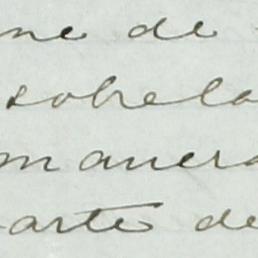 ne de
sobre la
manera
arte de